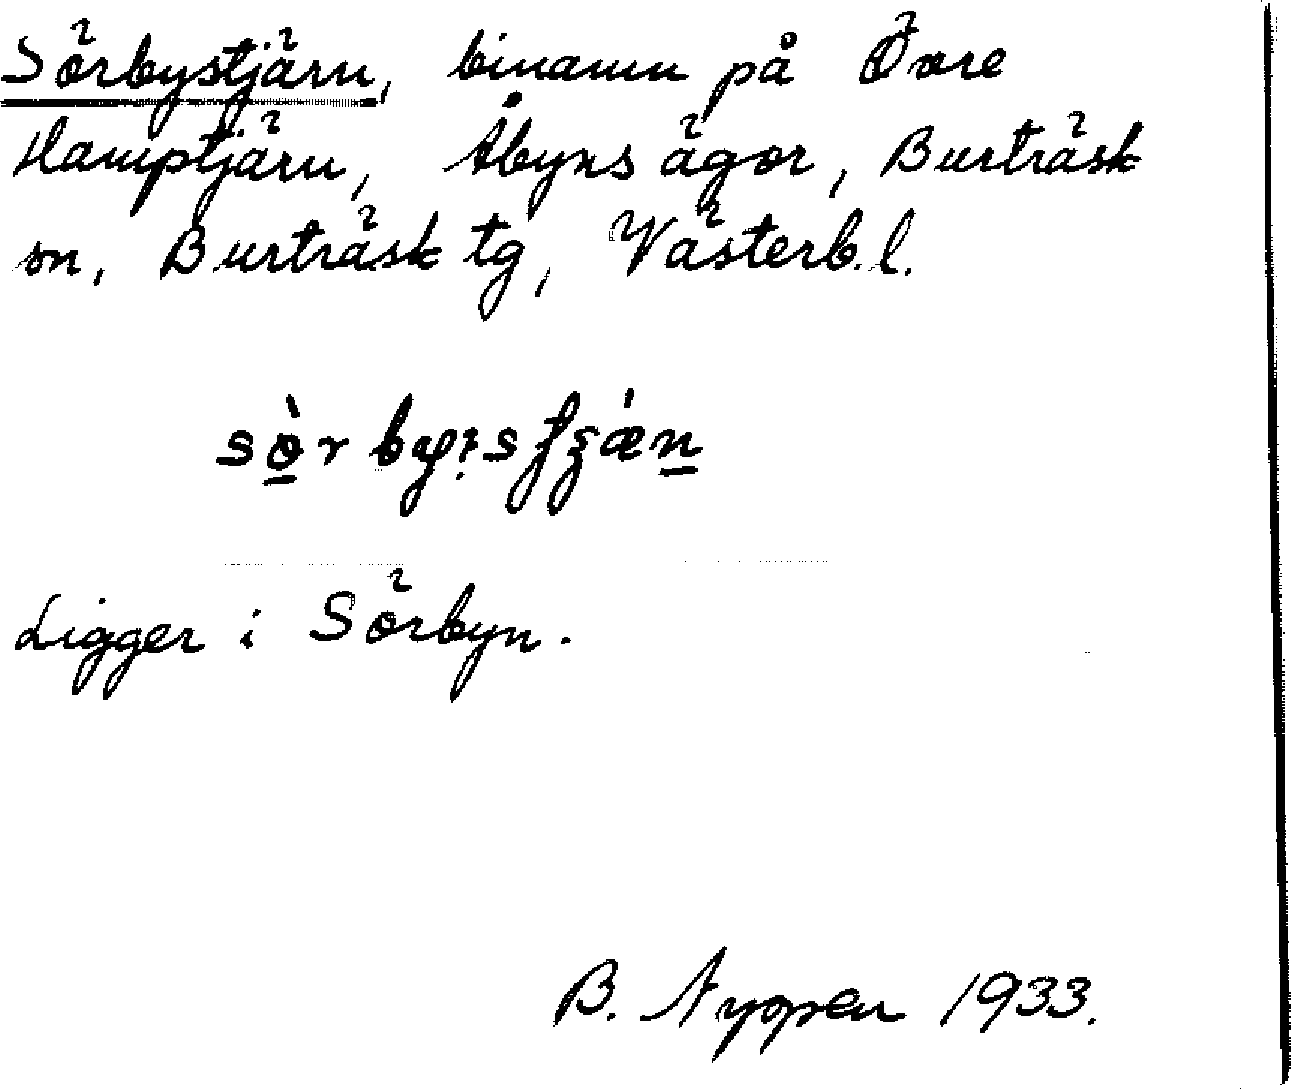 Sörbystjärn, binamn på Övre
Hamptjärn, Åbyns ägor, Burträsk
sn, Burträsk tg, Västerb. l.
Ligger i Sörbyn.
B. 1933.